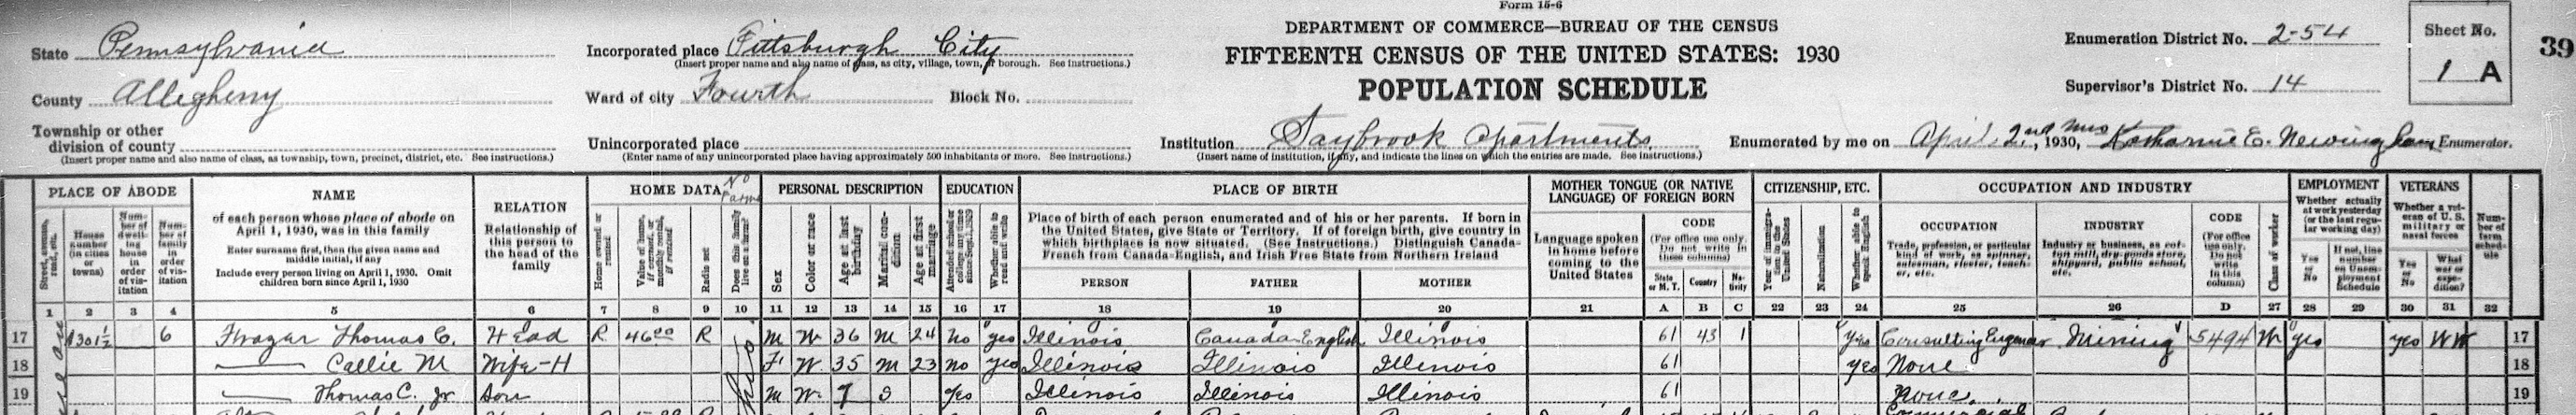 Form 15-6
State Pennsylvania
Incorporated place Pittsburgh City
(Insert proper name and also name of class, as city, village, town, or borough. See instructions.)
DEPARTMENT OF COMMERCE—BUREAU OF THE CENSUS
FIFTEENTH CENSUS OF THE UNITED STATES: 1930
POPULATION SCHEDULE
Enumeration District No. 2-54
Supervisor's District No. 14
Sheet No.
1 A
39
County Allegheny
Ward of city Fourth Block No.
Township or other
division of county
(Insert proper name and also name of class, as township, town, precinct, district, etc. See instructions.)
Unincorporated place
(Enter name of any unincorporated place having approximately 500 inhabitants or more. See instructions.)
Institution Saybrook Apartments
(Insert name of institution, if any, and indicate the lines on which the entries are made. See instructions.)
Enumerated by me on April 2nd, 1930, Mrs Katharine E. Newingham Enumerator.
PLACE OF ABODE
Street, avenue, road, etc.
House number (in cities or towns)
Number of dwelling house in order of visitation
Number of family in order of visitation
NAME
of each person whose place of abode on
April 1, 1930, was in this family
Enter surname first, then the given name and
middle initial, if any
Include every person living on April 1, 1930. Omit
children born since April 1, 1930
RELATION
Relationship of
this person to
the head of the
family
HOME DATA
No Farms
Home owned or rented
Value of home, if owned, or monthly rental, if rented
Radio set
Does this family live on a farm?
PERSONAL DESCRIPTION
Sex
Color or race
Age at last birthday
Marital condition
Age at first marriage
EDUCATION
Attended school or college any time since Sept. 1, 1929
Whether able to read and write
PLACE OF BIRTH
Place of birth of each person enumerated and of his or her parents. If born in
the United States, give State or Territory. If of foreign birth, give country in
which birthplace is now situated. (See Instructions.) Distinguish Canada-
French from Canada-English, and Irish Free State from Northern Ireland
PERSON FATHER MOTHER
MOTHER TONGUE (OR NATIVE
LANGUAGE) OF FOREIGN BORN
Language spoken
in home before
coming to the
United States
CODE
(For office use only.
Do not write in
these columns)
State or M. T.
Country
Nativity
CITIZENSHIP, ETC.
Year of immigration to the United States
Naturalization
Whether able to speak English
OCCUPATION AND INDUSTRY
OCCUPATION
Trade, profession, or particular
kind of work, as spinner,
salesman, riveter, teach-
er, etc.
INDUSTRY
Industry or business, as cot-
ton mill, dry-goods store,
shipyard, public school,
etc.
CODE
(For office
use only.
Do not
write
in this
column)
Class of worker
EMPLOYMENT
Whether actually
at work yesterday
(or the last regu-
lar working day)
Yes or No
If not, line number on Unemployment Schedule
VETERANS
Whether a vet-
eran of U. S.
military or
naval forces
Yes or No
What war or expedition?
Number of farm schedule
1 2 3 4 5 6 7 8 9 10 11 12 13 14 15 16 17 18 19 20 21 A B C 22 23 24 25 26 D 27 28 29 30 31 32
17 301½ 6 Frazar Thomas C. Head R 46.00 R M W 36 M 24 no yes Illinois Canada-English Illinois 61 43 1 yes Consulting Engineer Mining 5494 W yes yes WW 17
18 — Callie M Wife-H F W 35 M 23 no yes Illinois Illinois Illinois 61 yes None 18
19 — Thomas C. Jr Son M W 7 S yes Illinois Illinois Illinois 61 None 19